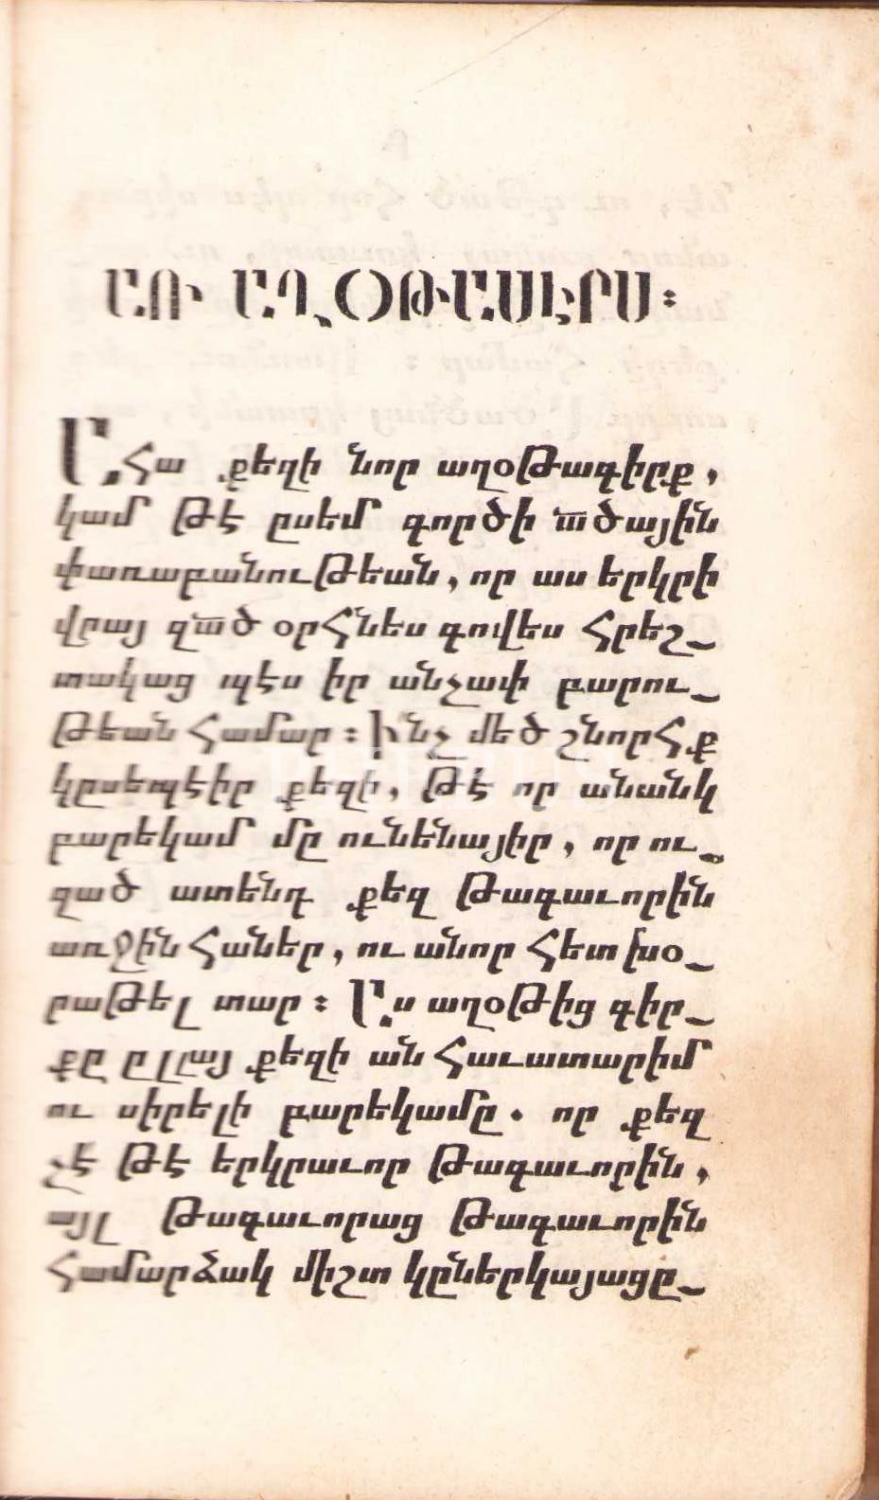 ԱՌ ԱՂՕԹԱՍԷՐՍ։
Ահա քեզի նոր աղօթագիրք,
կամ թէ ըսեմ գործի ածային
փառաբանութեան, որ աս երկրի
վրայ զած օրհնես գովես հրեշ_
տակաց պէս իր անչափ բարու_
թեան համար։ Ինչ մեծ շնորհք
կըսեպէիր քեզի, թէ որ անանկ
բարեկամ մը ունենայիր, որ ու_
զած ատենդ քեզ թագաւորին
առջին հաներ, ու անոր հետ խօ_
րաթել տար։ Աս աղօթից գիր_
քը ըլլայ քեզի ան հաւատարիմ
ու սիրելի բարեկամը. որ քեզ
չէ թէ երկրաւոր թագաւորին,
այլ թագաւորաց թագաւորին
համարձակ միշտ կըներկայացը_